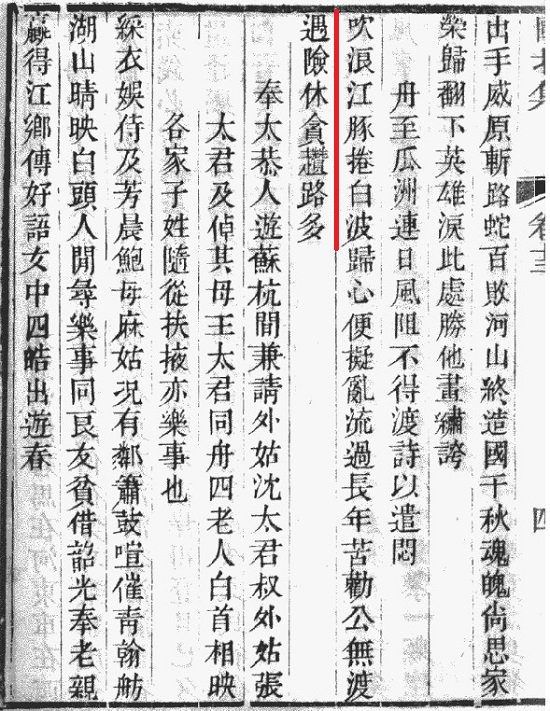 出手威原斬路蛇百敗河山終造國千秋魂魄尙思家
榮歸翻下英雄淚此處勝他畫繡誇
舟至瓜洲連日風阻不得渡詩以遣悶
吹浪江豚捲白波歸心便擬亂流過長年苦勸公無渡
遇險休貪趲路多
奉太恭人遊蘇杭間兼請外姑沈太君叔外姑張
太君及倬其母王太君同舟四老人白首相映
各家子姓隨從扶掖亦樂事也
綵衣娛侍及芳晨鮑母麻姑況有鄰簫鼓喧催靑翰舫
湖山晴映白頭人閒尋樂事同良友貧借韶光奉老親
贏得江鄉傳好語女中四皓出遊春
卷十三
四